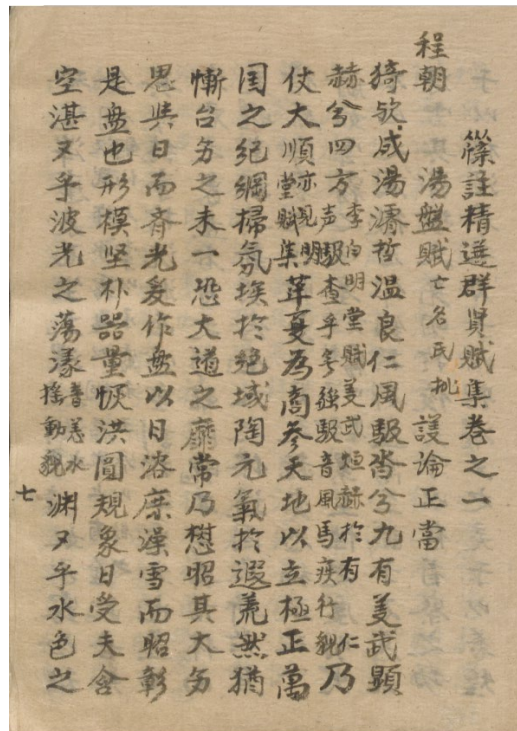 篠註精選群賢賦集卷之一
程朝 湯盤賦 亡名氏 批 議論正當
猗欤成湯濬哲溫良仁風馺沓兮九有美武顯
赫兮四方李白明堂賦美武烜赫於有仁声馺查乎強馺音風馬疾行貌乃
仗大順亦見明堂賦集革夏為商參天地以立極正萬
国之紀綱掃氛埃於絶域陶元氣於遐荒然猶
慚台务之未一恐大道之靡常乃懋昭其大务
思與日而齊光爰作盘以日浴庶澡雪而昭彰
是盘也形模坚朴器量恢洪圓規象日受夫含
空湛又乎波光之蕩漾音恙水揺動貌淵又乎水色之
七